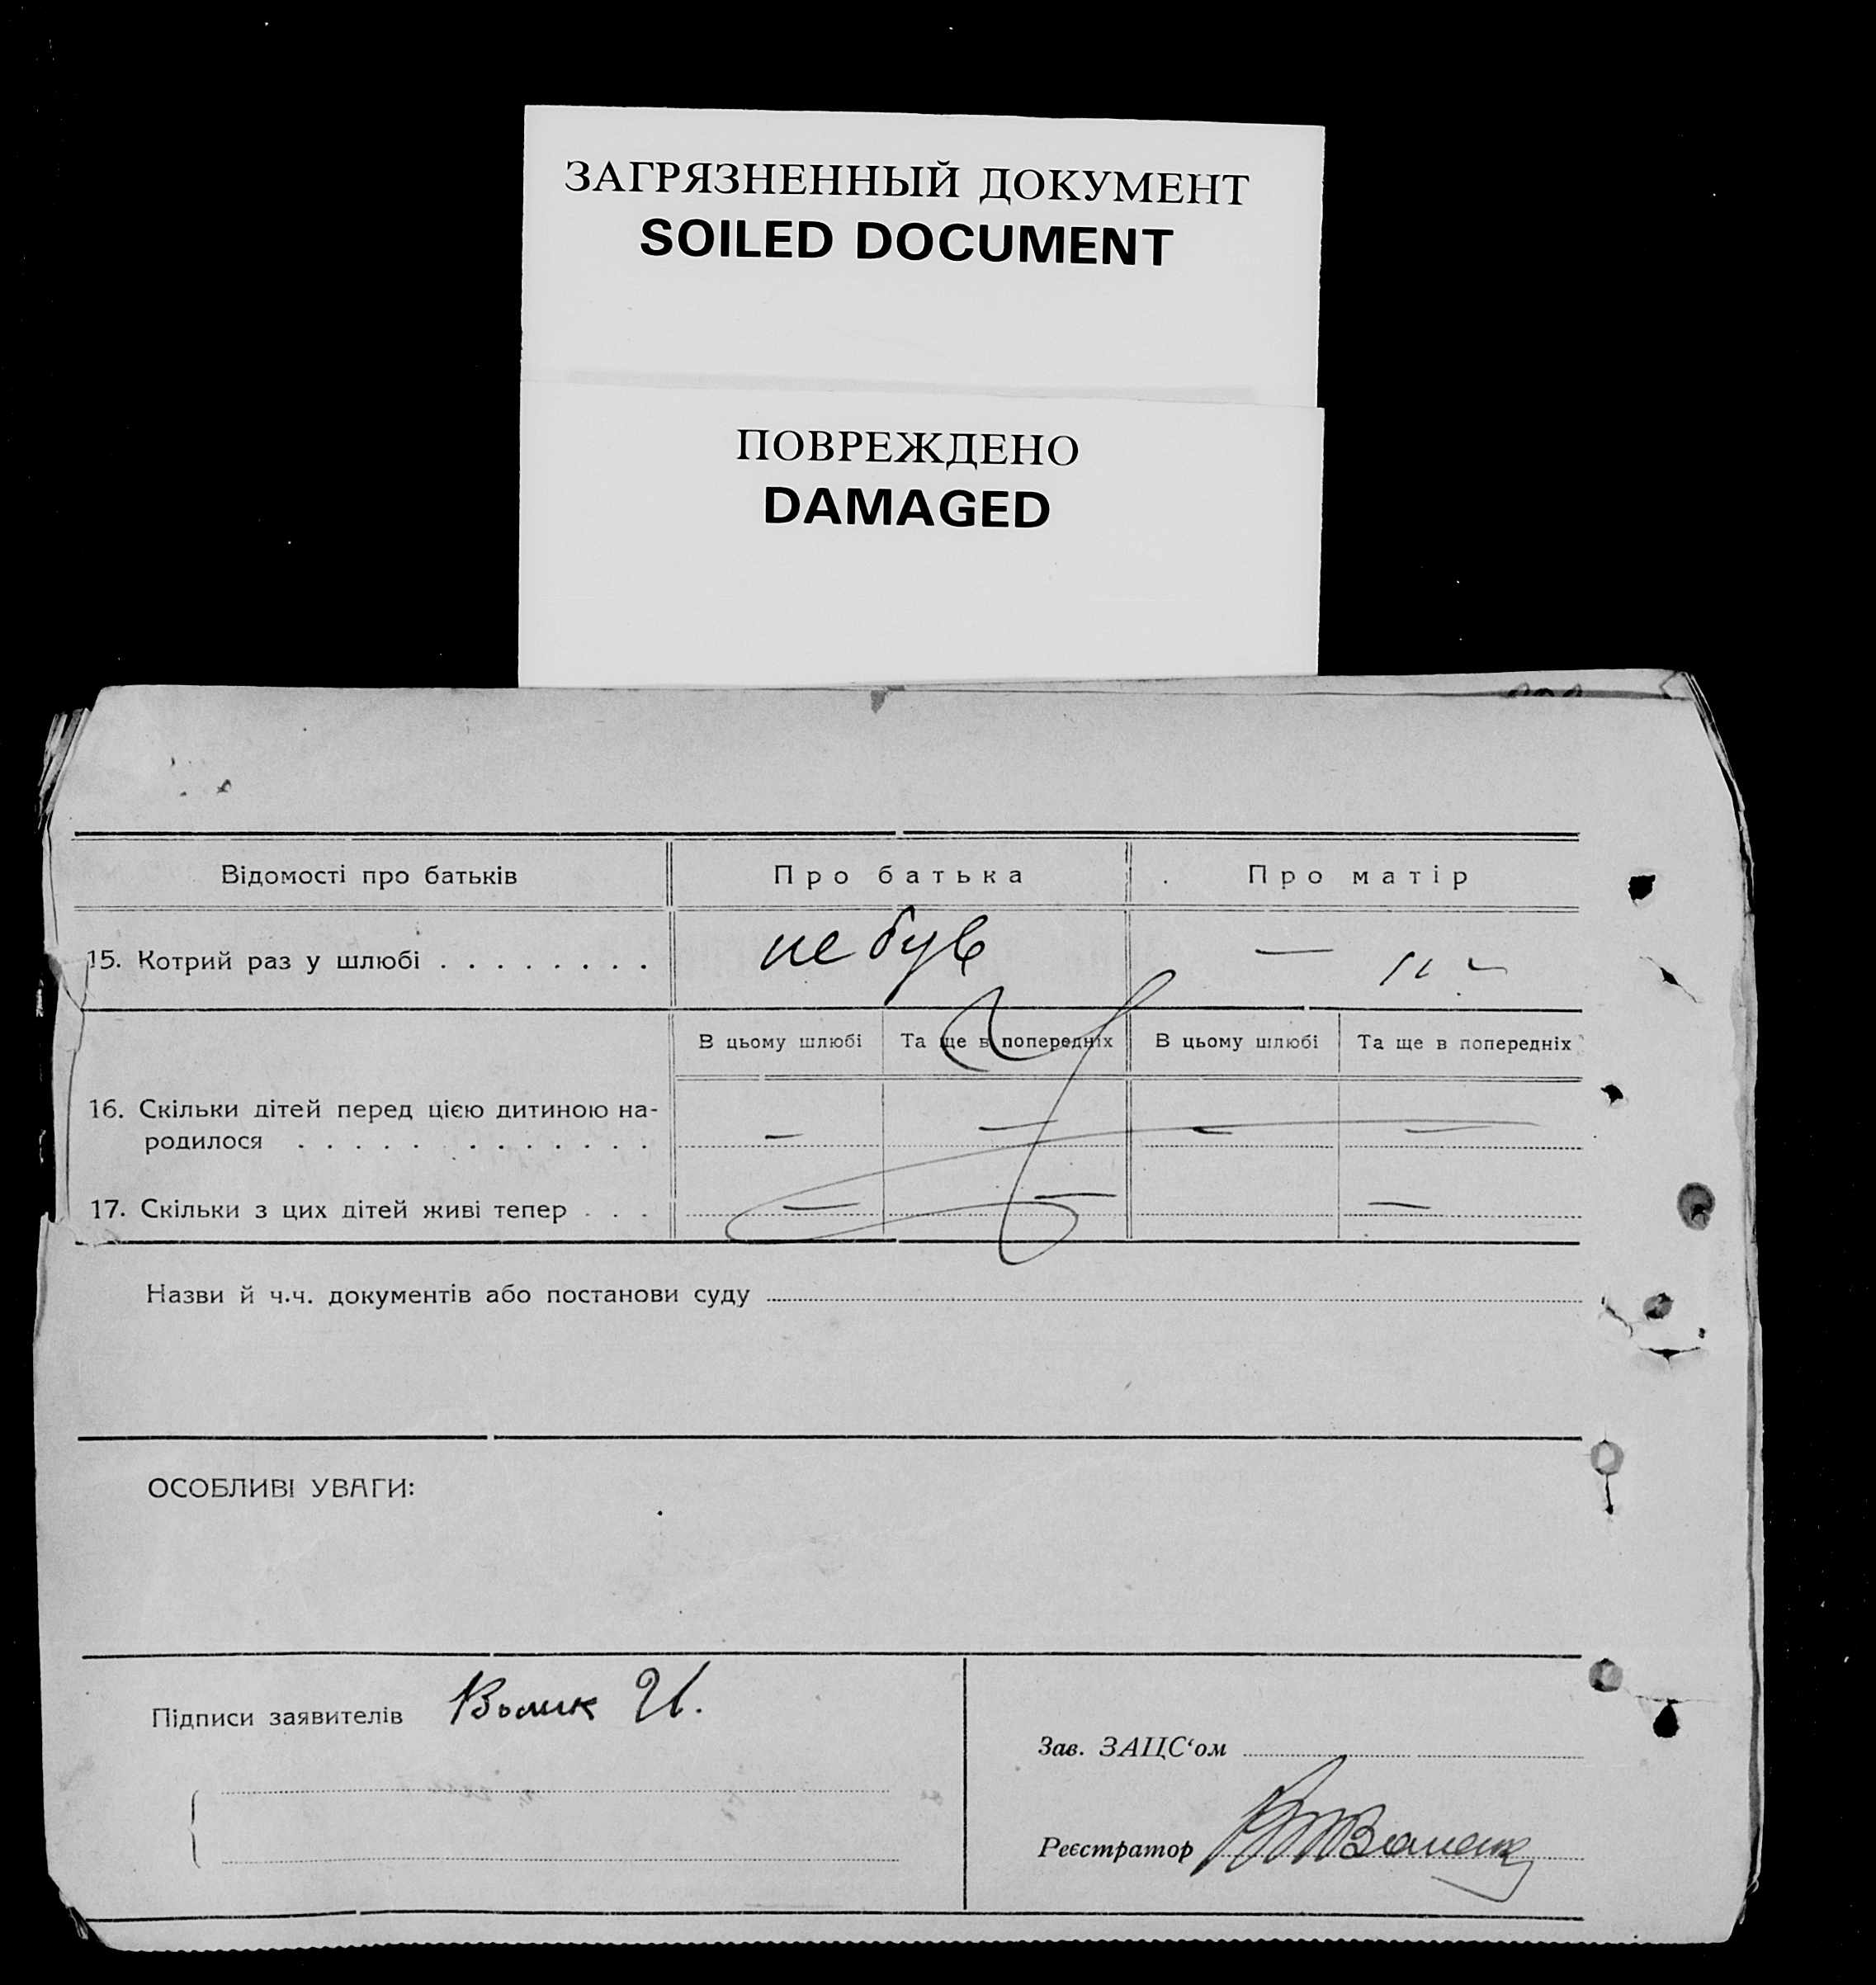 ЗАГРЯЗНЕННЫЙ ДОКУМЕНТ
SOILED DOCUMENT
ПОВРЕЖДЕНО
DAMAGED
Відомості про батьків Про батька Про матір
15. Котрий раз у шлюбі . . . . . . . . не був — " —
В цьому шлюбі Та ще в попередніх В цьому шлюбі Та ще в попередніх
16. Скільки дітей перед цією дитиною на-
родилося . . . . . . . . . . . . . — — — —
17. Скільки з цих дітей живі тепер . . . — — —
Назви й ч.ч. документів або постанови суду
ОСОБЛИВІ УВАГИ:
Підписи заявителів И.
Зав. ЗАЦС‘ом
Реєстратор